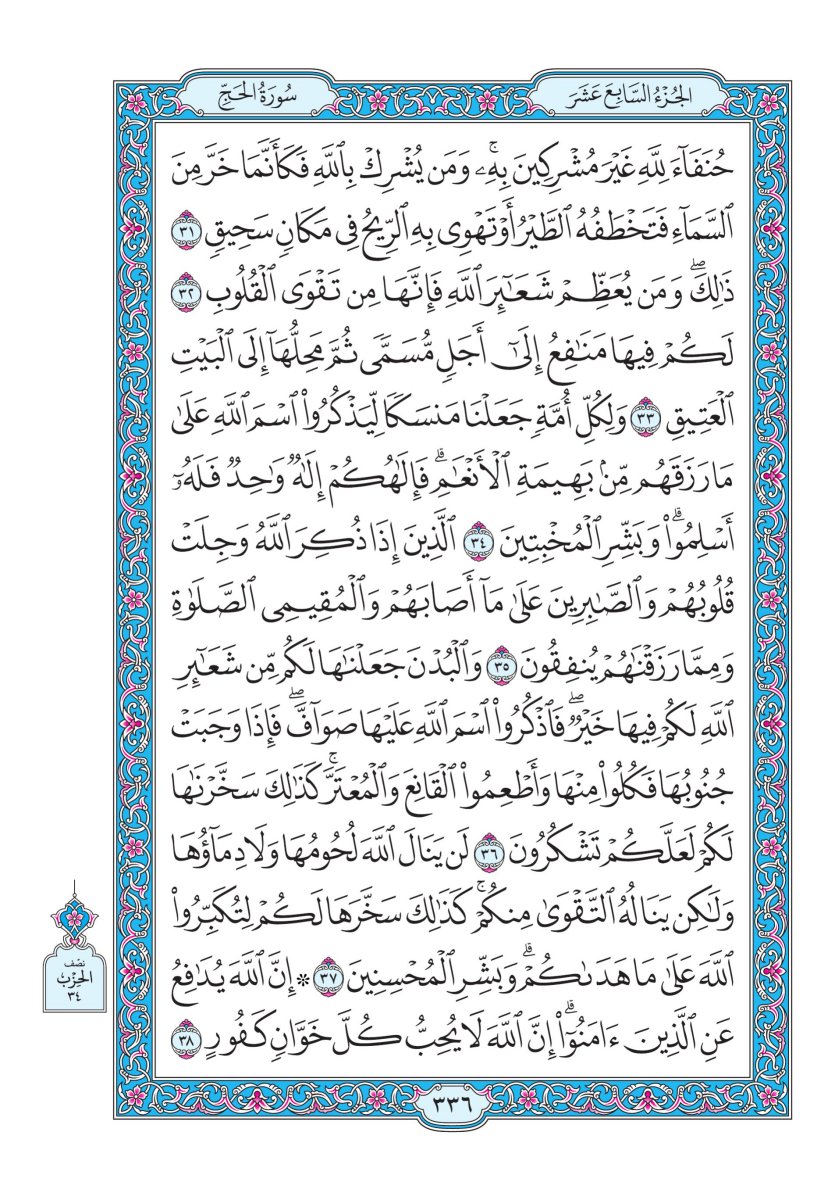 الجُزْءُ السَّابِعَ عَشَرَ
سُورَةُ الحَجِّ
حُنَفَآءَ لِلَّهِ غَيْرَ مُشْرِكِينَ بِهِۦۚ وَمَن يُشْرِكْ بِٱللَّهِ فَكَأَنَّمَا خَرَّ مِنَ
ٱلسَّمَآءِ فَتَخْطَفُهُ ٱلطَّيْرُ أَوْ تَهْوِى بِهِ ٱلرِّيحُ فِى مَكَانٍ سَحِيقٍ ٣١
ذَٰلِكَۖ وَمَن يُعَظِّمْ شَعَـٰٓئِرَ ٱللَّهِ فَإِنَّهَا مِن تَقْوَى ٱلْقُلُوبِ ٣٢
لَكُمْ فِيهَا مَنَـٰفِعُ إِلَىٰٓ أَجَلٍ مُّسَمًّى ثُمَّ مَحِلُّهَآ إِلَى ٱلْبَيْتِ
ٱلْعَتِيقِ ٣٣ وَلِكُلِّ أُمَّةٍ جَعَلْنَا مَنسَكًا لِّيَذْكُرُوا۟ ٱسْمَ ٱللَّهِ عَلَىٰ
مَا رَزَقَهُم مِّنۢ بَهِيمَةِ ٱلْأَنْعَـٰمِۗ فَإِلَـٰهُكُمْ إِلَـٰهٌ وَٰحِدٌ فَلَهُۥٓ
أَسْلِمُوا۟ۗ وَبَشِّرِ ٱلْمُخْبِتِينَ ٣٤ ٱلَّذِينَ إِذَا ذُكِرَ ٱللَّهُ وَجِلَتْ
قُلُوبُهُمْ وَٱلصَّـٰبِرِينَ عَلَىٰ مَآ أَصَابَهُمْ وَٱلْمُقِيمِى ٱلصَّلَوٰةِ
وَمِمَّا رَزَقْنَـٰهُمْ يُنفِقُونَ ٣٥ وَٱلْبُدْنَ جَعَلْنَـٰهَا لَكُم مِّن شَعَـٰٓئِرِ
ٱللَّهِ لَكُمْ فِيهَا خَيْرٌۖ فَٱذْكُرُوا۟ ٱسْمَ ٱللَّهِ عَلَيْهَا صَوَآفَّۖ فَإِذَا وَجَبَتْ
جُنُوبُهَا فَكُلُوا۟ مِنْهَا وَأَطْعِمُوا۟ ٱلْقَانِعَ وَٱلْمُعْتَرَّۚ كَذَٰلِكَ سَخَّرْنَـٰهَا
لَكُمْ لَعَلَّكُمْ تَشْكُرُونَ ٣٦ لَن يَنَالَ ٱللَّهَ لُحُومُهَا وَلَا دِمَآؤُهَا
وَلَـٰكِن يَنَالُهُ ٱلتَّقْوَىٰ مِنكُمْۚ كَذَٰلِكَ سَخَّرَهَا لَكُمْ لِتُكَبِّرُوا۟
ٱللَّهَ عَلَىٰ مَا هَدَىٰكُمْۗ وَبَشِّرِ ٱلْمُحْسِنِينَ ٣٧ ۞ إِنَّ ٱللَّهَ يُدَٰفِعُ
عَنِ ٱلَّذِينَ ءَامَنُوٓا۟ۗ إِنَّ ٱللَّهَ لَا يُحِبُّ كُلَّ خَوَّانٍ كَفُورٍ ٣٨
نصف
الحزب
٣٤
٣٣٦